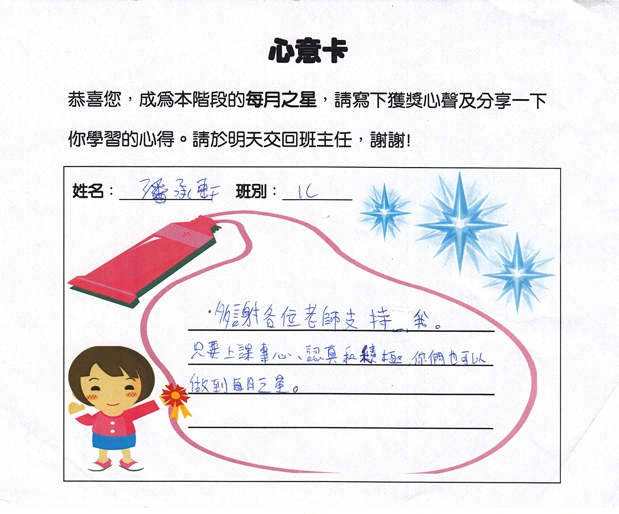 心意卡
恭喜您，成為本階段的每月之星，請寫下獲獎心聲及分享一下
你學習的心得。請於明天交回班主任，謝謝!
姓名：潘承軒 班別：1C
多謝各位老師支持我。
只要上課專心、認真和積極 你們也可以
做到每月之星。